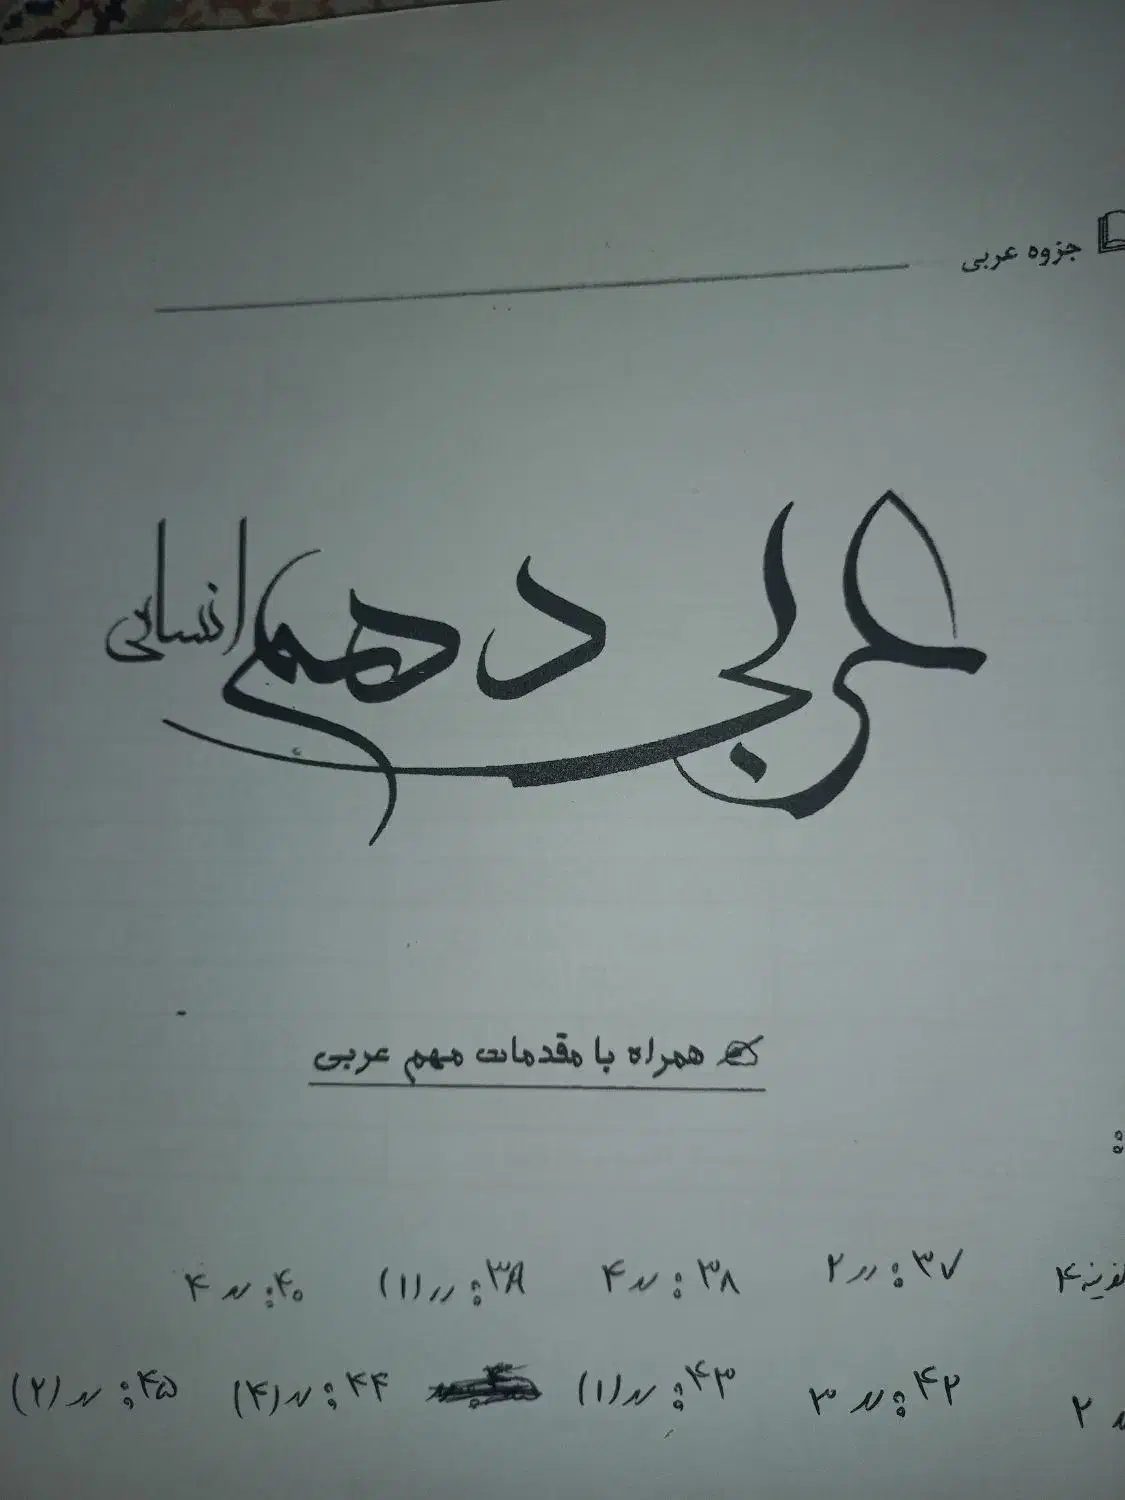 جزوه عربی
عربی دهم انسانی
همراه با مقدمات مهم عربی
:
گزینه ۴ ۳۷: 〃 ۲ ۳۸: 〃 ۴ ۳۹: 〃 (۱) ۴۰: 〃 ۴
〃 ۲ ۴۲: 〃 ۳ ۴۳: 〃 (۱) ۴۴: 〃 (۴) ۴۵: 〃 (۲)